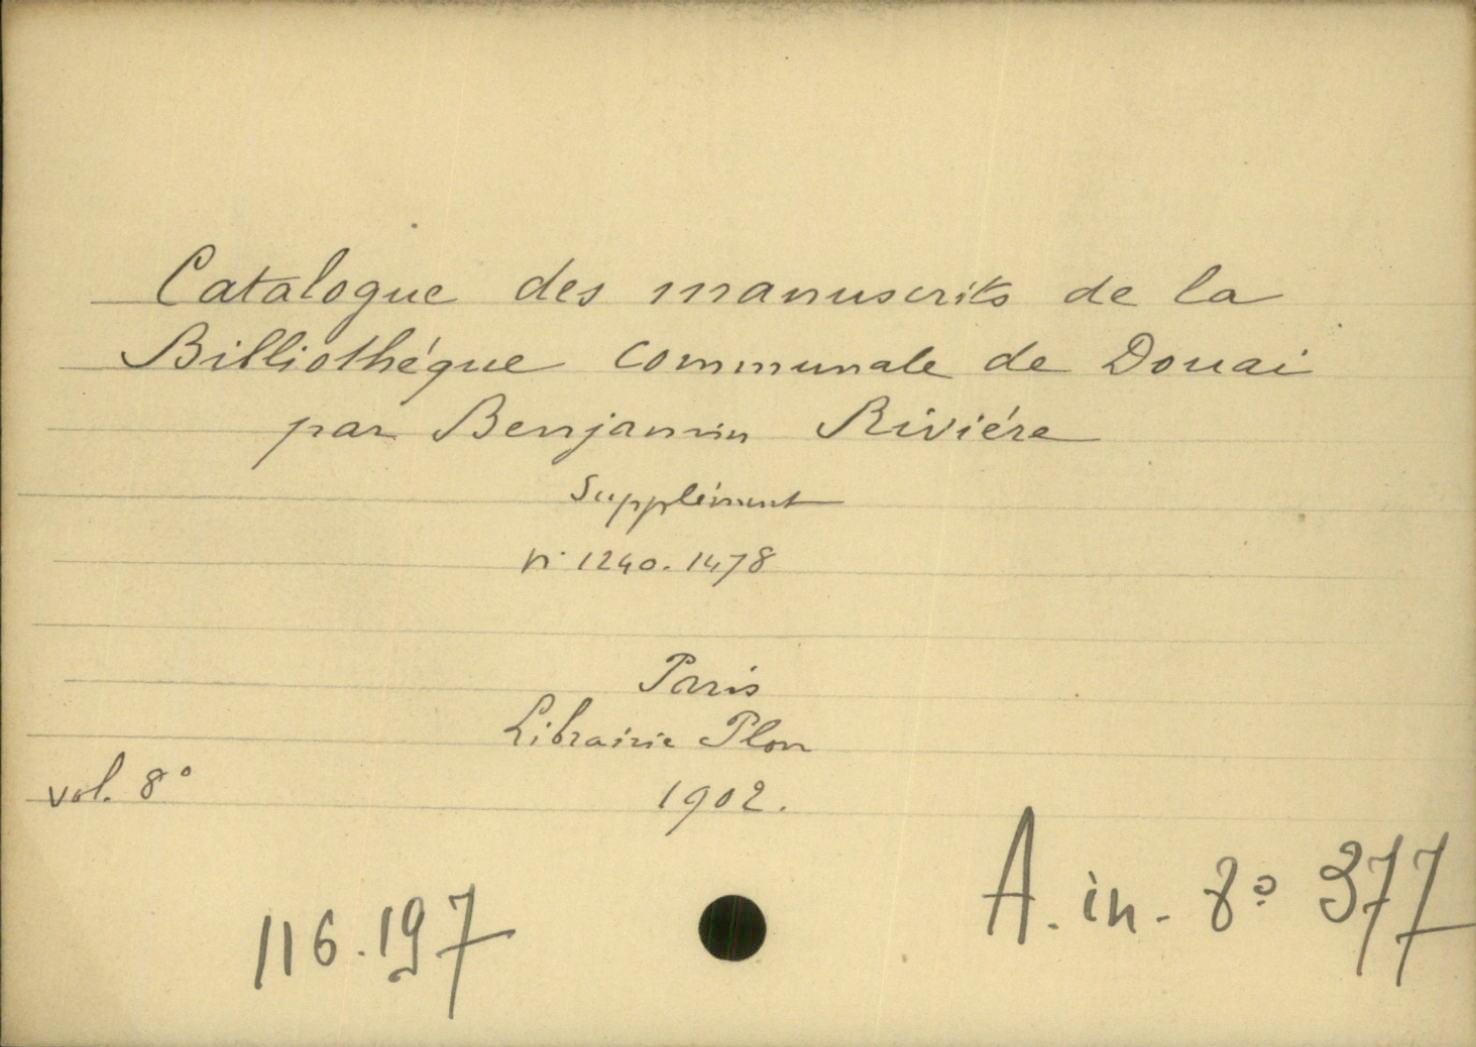 Catalogue des manuscrits de la
Bibliothéque communale de Douai
par Benjamin Riviére
Supplément
n: 1240. 1478
Paris
Librairie Plon
vol. 8° 1902.
116.197 A. in - 8° 377